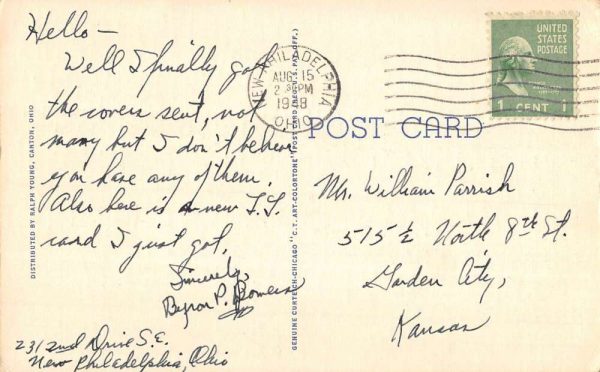 Hello —
Well I finally got
the covers sent, not
many but I don't believe
you have any of them.
Also here is a new T.T.
card I just got.
Sincerely,
Byron P.
231 2nd Drive S.E.
New Philadelphia, Ohio
DISTRIBUTED BY RALPH YOUNG, CANTON, OHIO
GENUINE CURTEICH-CHICAGO "C.T. ART-COLORTONE" POST CARD (REG. U.S. PAT. OFF.)
NEW PHILADELPHIA
AUG 15
2 PM
OHIO
UNITED
STATES
POSTAGE
1 CENT 1
POST CARD
Mr. William Parrish
515 ½ North 8th St.
Garden City,
Kansas